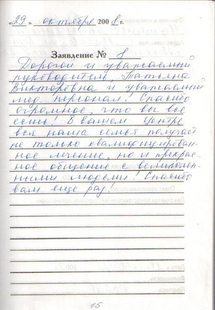 29 октября 2008 г.
Заявление № 1
Дорогой и уважаемый
руководитель, Татьяна
Викторовна и уважаемый
мед. персонал! Спасибо
огромное, что вы все
есть! В вашем центре
вся наша семья получает
не только квалифицирован-
ное лечение, но и прекрас-
ное общение с великолеп-
ными людьми! Спасибо
вам еще раз!
15